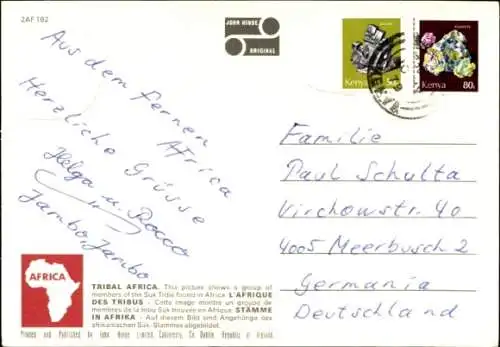 2AF 182
JOHN HINDE
ORIGINAL
Kenya
Kenya 80c
Aus dem fernen
Africa
Herzliche Grüsse
Helga u. Rocco
Jambo, Jambo
Familie
Paul Schulta
Virchowstr. 40
4005 Meerbusch 2
Germania
Deutschland
AFRICA
TRIBAL AFRICA. This picture shows a group of
members of the Suk Tribe found in Africa L'AFRIQUE
DES TRIBUS - Cette image montre un groupe de
membres de la tribu Suk trouvée en Afrique. STÄMME
IN AFRIKA - Auf diesem Bild sind Angehörige des
afrikanischen Suk-Stammes abgebildet.
Printed and Published by John Hinde Limited, Cabinteely, Co. Dublin, Republic of Ireland.